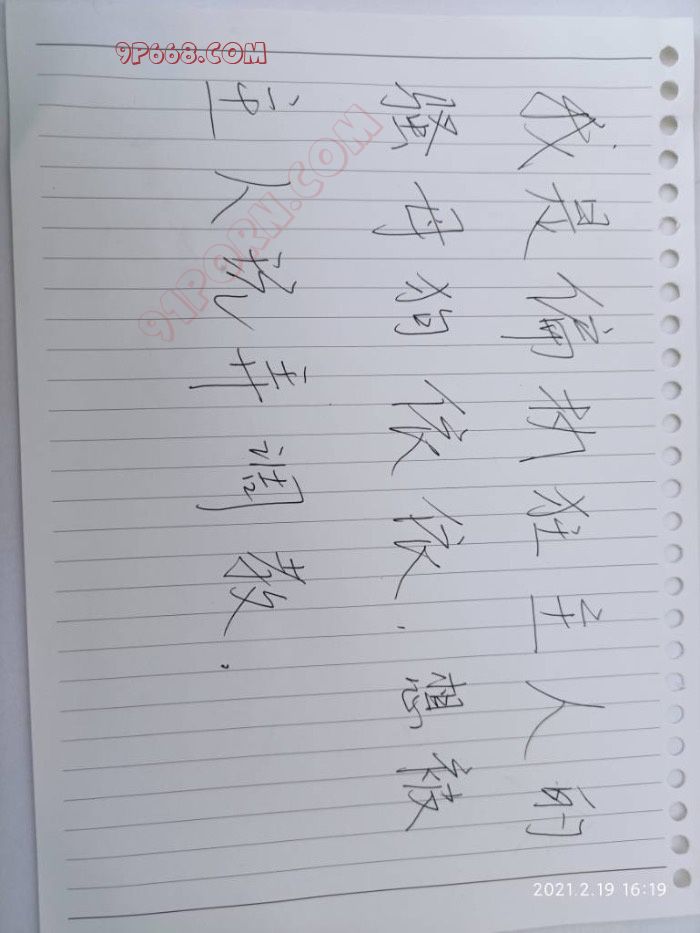 9P668.COM
我是偏执狂主人的
骚母狗依依.想被
主人玩弄调教.
91PORN.COM
2021.2.19 16:19